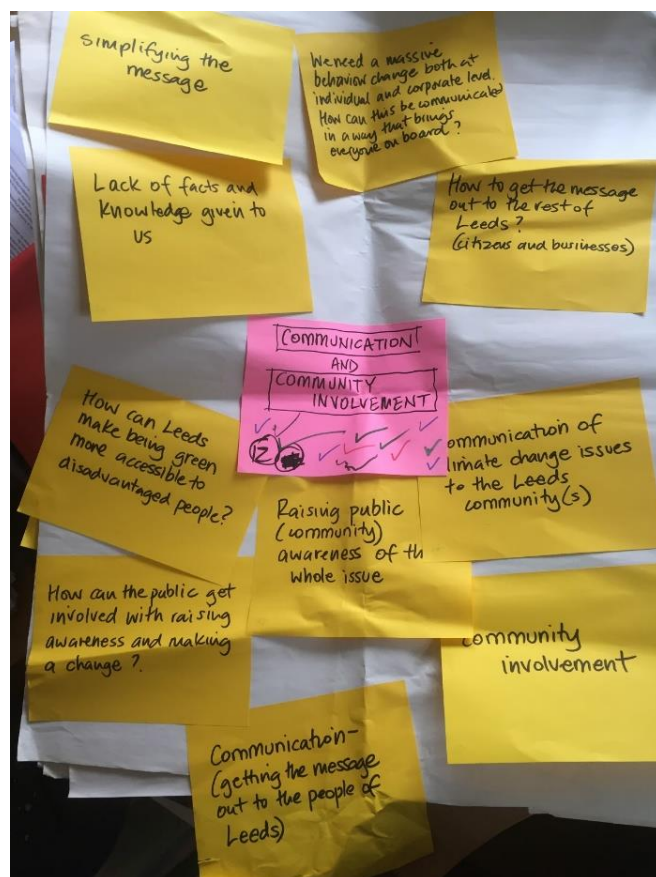 simplifying the
message
We need a massive
behavior change both at
individual and corporate level.
How can this be communicated
in a way that brings
everyone on board?
Lack of facts and
knowledge given to
us
How to get the message
out to the rest of
Leeds?
(citizens and businesses)
COMMUNICATION
AND
COMMUNITY
INVOLVEMENT
12
How can Leeds
make being green
more accessible to
disadvantaged people?
ommunication of
limate change issues
to the Leeds
community(s)
Raising public
(community)
awareness of th
whole issue
How can the public get
involved with raising
awareness and making
a change?
ommunity
involvement
Communication-
(getting the message
out to the people of
Leeds)